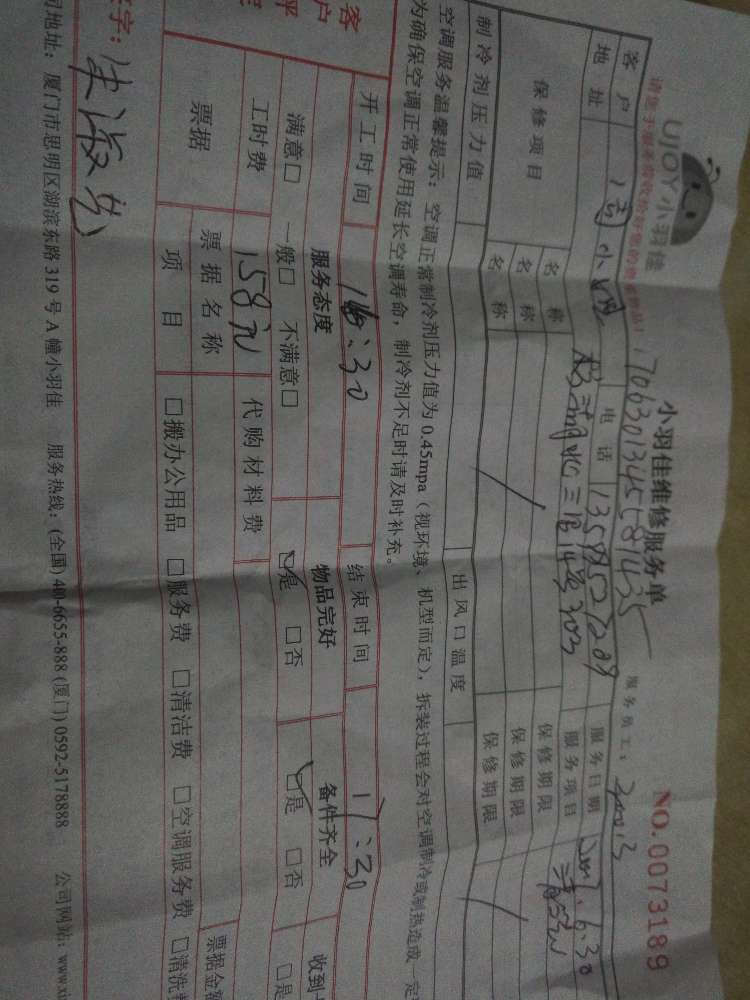 UJOY小羽佳
小羽佳维修服务单
NO.0073189
服务员工:
客户
电话
服务日期
地址
服务项目
清洗
保修项目
名称
保修期限
名称
保修期限
名称
保修期限
制冷剂压力值
出风口温度
空调服务温馨提示:空调正常制冷剂压力值为0.45mpa(视环境、机型而定),拆装过程会对空调制冷或制热造成一定
为确保空调正常使用延长空调寿命,制冷剂不足时请及时补充。
开工时间
16:30
结束时间
17:30
客户
服务态度
物品完好
备件齐全
收到
满意□ 一般□ 不满意□
□是 □否
□是 □否
□是
工时费
158元
代购材料费
票据
票据名称
票据金额
项目
□搬办公用品 □服务费 □清洁费 □空调服务费 □清洗
签字:
司地址:厦门市思明区湖滨东路319号A幢小羽佳 服务热线:(全国)400-6655-888(厦门)0592-5178888 公司网站:www.xi